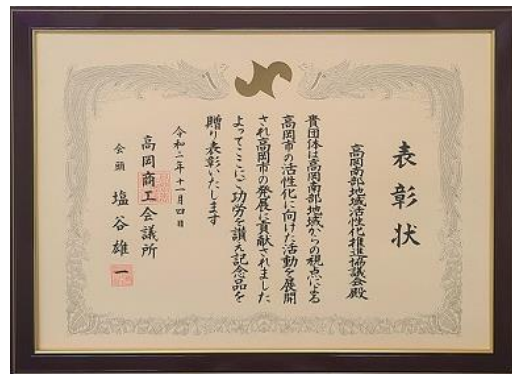 表彰状
高岡南部地域活性化推進協議会殿
貴団体は高岡南部地域からの視点による
高岡市の活性化に向けた活動を展開
され高岡市の発展に貢献されました
よってここにご功労を讃え記念品を
贈り表彰いたします
令和二年十一月四日
高岡商工会議所
会頭 塩谷雄一